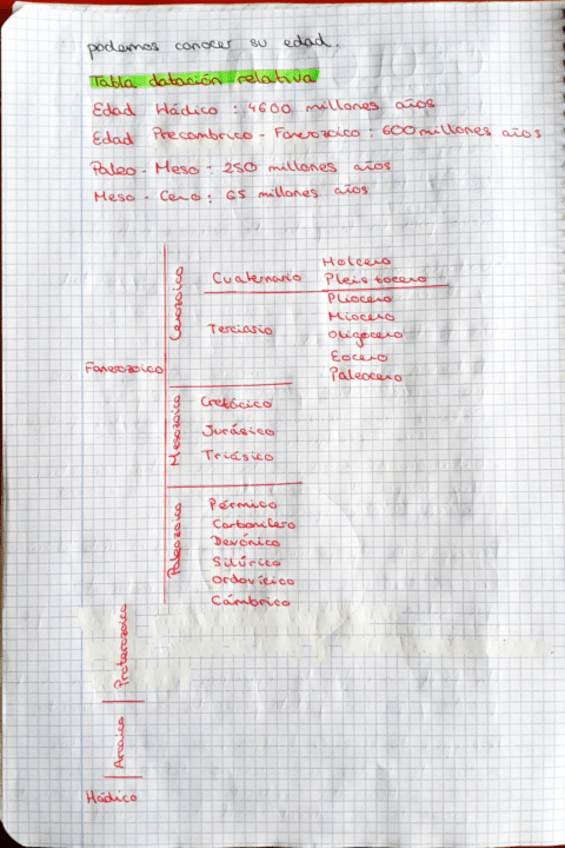 podemos conocer su edad.
Tabla datación relativa
Edad Hádico : 4600 millones años
Edad Precambrico - Fanerozoico : 600 millones años
Paleo - Meso : 250 millones años
Meso - Ceno : 65 millones años
Fanerozoico
Cenozoico
Cuaternario
Holoceno
Pleistoceno
Terciario
Plioceno
Mioceno
Oligoceno
Eoceno
Paleoceno
Mesozoico
Cretácico
Jurásico
Triásico
Paleozoico
Pérmico
Carbonífero
Devónico
Silúrico
Ordovícico
Cámbrico
Proterozoico
Arcaico
Hádico